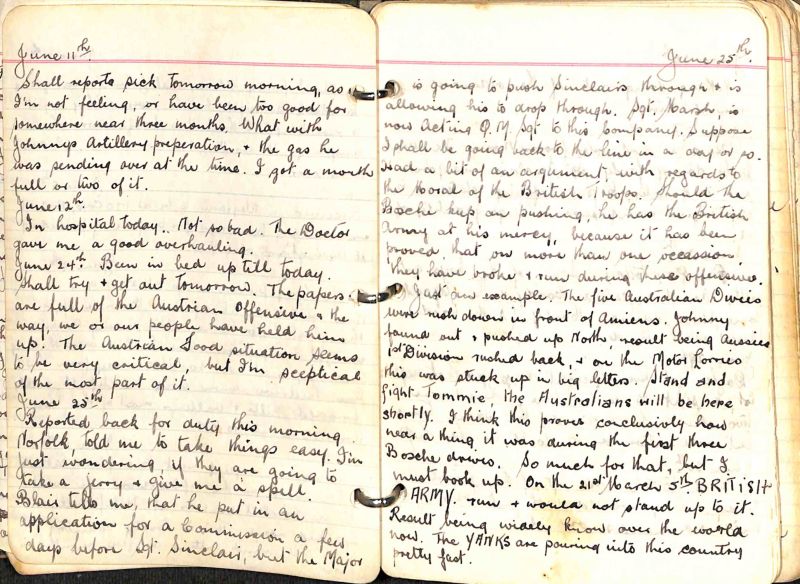 June 11th.
Shall reports sick tomorrow morning, as
I'm not feeling, or have been too good for
somewhere near three months. What with
Johnnys Artillery preperation, + the gas he
was sending over at the time. I got a mouth
full or two of it.
June 12th.
In hospital today.. Not so bad. The Doctor
gave me a good overhauling.
June 24th. Been in bed up till today.
Shall try + get out tomorrow. The papers
are full of the Austrian Offensive + the
way, we or our people have held him
up. The Austrian Food situation seems
to be very critical, but I'm sceptical
of the most part of it.
June 25th
Reported back for duty this morning.
Norfolk, told me to take things easy. I'm
just wondering, if they are going to
take a jerry + give me a spell.
Blair tells me, that he put in an
application for a Commission a few
days before Sgt. Sinclair, but the Major
June 25th.
is going to push Sinclairs through + is
allowing his to drop through. Sgt. Marsh, is
now Acting Q.M. Sgt to this Company. Suppose
I shall be going back to the line in a day or so.
Had a bit of an argument, with regards to
the Moral of the British Troops. Should the
Bosche keep on pushing, he has the British
Army at his mercy, because it has been
proved that on more than one occassion,
they have broke + run during these offensive.
Just an example. The five Australian Divies
were rush down in front of Amiens. Johnny
found out + pushed up North, result being Aussies
1st Division rushed back, + on the Motor Lorries
this was stuck up in big letters. Stand and
fight Tommie, the Australians will be here
shortly. I think this proves conclusively how
near a thing it was during the first three
Bosche drives. So much for that, but I
must book up. On the 21st March 5th BRITISH
ARMY. run + would not stand up to it.
Result being widely know over the world
now. The YANKS are pouring into this country
pretty fast.